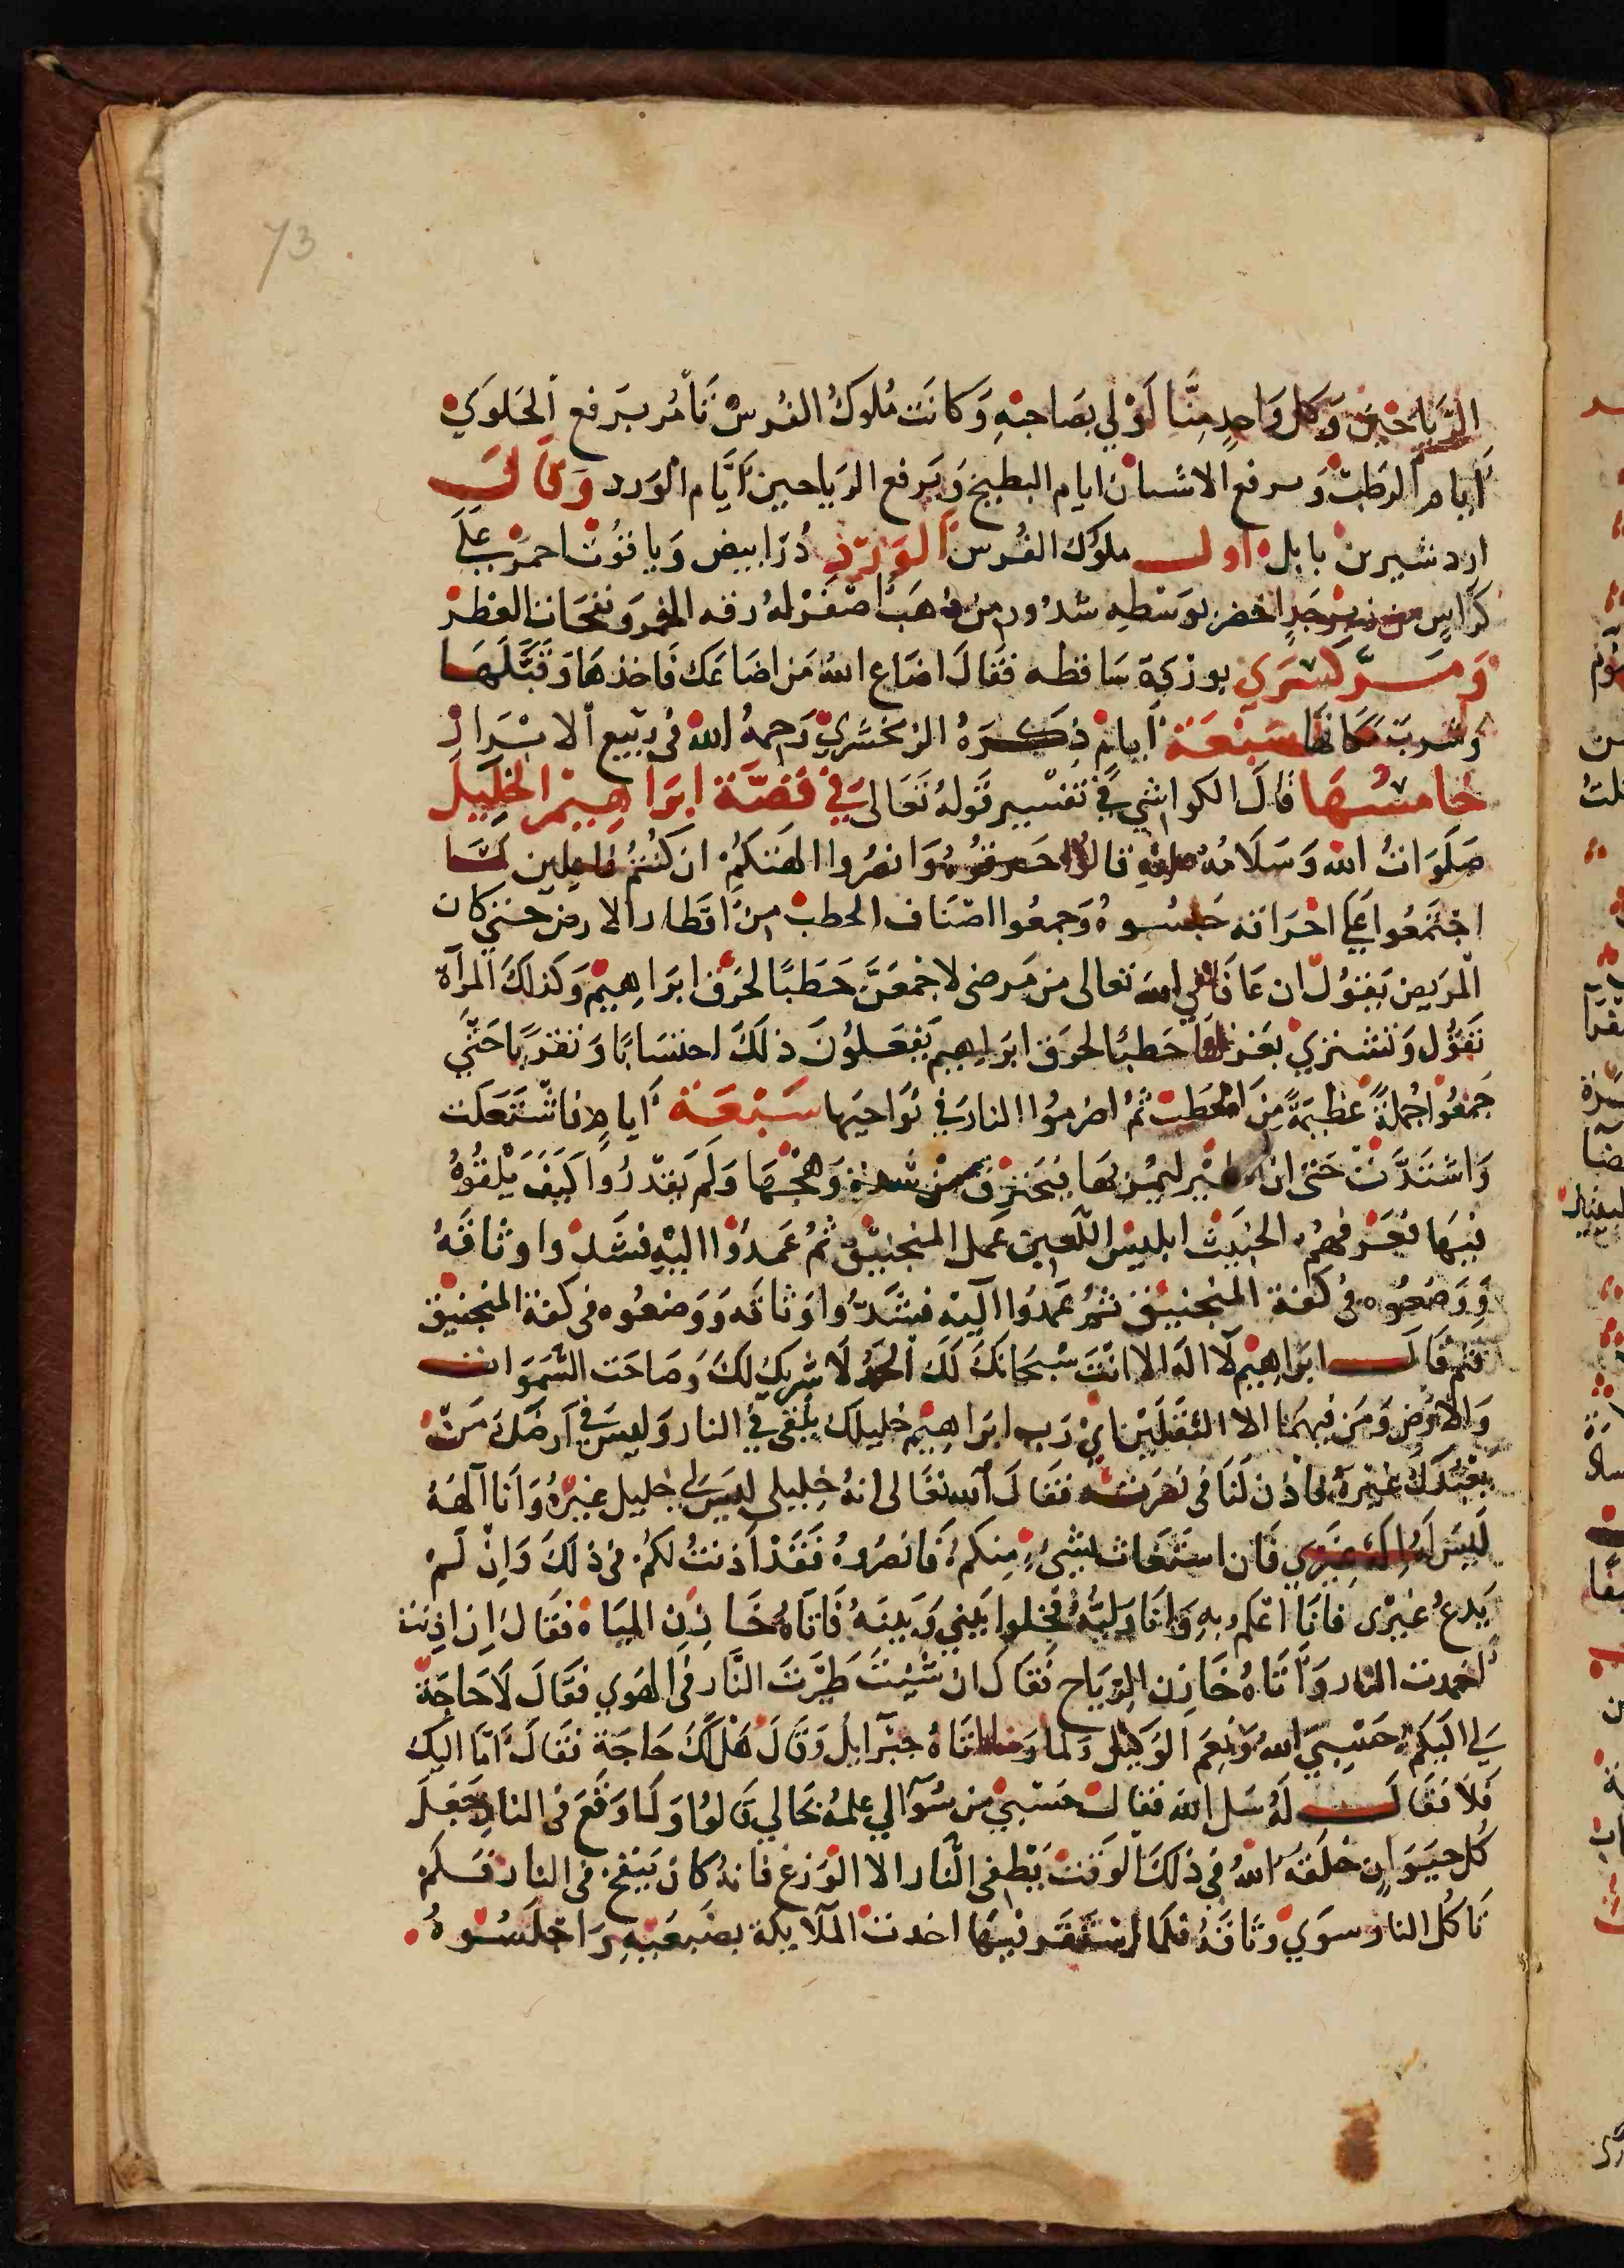 73
الرياحين وكل واحد منا لولي بصاحبه وكانت ملوك الفرس تأمر برفع الحلوي
ايام الرطب وبرفع الاشنان ايام البطيخ وبرفع الرياحين ايام الورد وقال
اردشير بن بابل اول ملوك الفرس الورد در ابيض وياقوت احمر علي
كراسي من زبرجد اخضر بوسطه شذور من ذهب اصفر له رقه الخمر ونفحات العطر
ومر كسري بوردة ساقطه فقال اضاع الله من اضاعك فاخذها وقبلها
وشرب مكانها سبعة ايام ذكره الزمخشري رحمه الله في ربيع الابرار
خامسها قال الكواشي في تفسير قوله تعالى في قصة ابراهيم الخليل
صلوات الله وسلامه عليه قالوا حرقوه وانصروا الهتكم ان كنتم فاعلين لما
اجتمعوا علي احراقه حبسوه وجمعوا اصناف الحطب من اقطار الارض حتي كان
المريض يقول ان عافاني الله تعالى من مرضي لاجمعن حطبا لحرق ابراهيم وكذلك المرآة
تقول وتشتري بغزلها حطبا لحرق ابراهيم يفعلون ذلك احتسابا وتقربا حتي
جمعوا جملة عظيمة من الحطب ثم اضرموا النار في نواحيها سبعة ايام فاشتعلت
واشتدت حتى ان الطير ليمر بها فيحترق من شدة وهجها ولم يقدروا كيف يلقوه
فيها فعرفهم الخبيث ابليس اللعين عمل المنجنيق ثم عمدوا اليه فشدوا وثاقه
ووضعوه في كفة المنجنيق ثم عمدوا اليه فشدوا وثاقه ووضعوه في كفة المنجنيق
ثم قال ابراهيم لا اله الا انت سبحانك لك الحمد لا شريك لك وصاحت السموات
والارض ومن فيهما الا الثقلين اي رب ابراهيم خليلك يلقى في النار وليس في ارضك من
يعبدك غيره فاذن لنا في نصرته فقال الله تعالى انه خليلي ليس لي خليل غيره وانا آلهه
ليس له اله غيري فان استغاث بشي منكم فانصروه فقد اذنت لكم في ذلك وان لم
يدع غيري فانا اعلم به وانا وليه فخلوا بيني وبينه فاتاه خازن المياه فقال ان اذنت
اخمدت النار واتاه خازن الرياح فقال ان شيت طيرت النار في الهوي فقال لا حاجة
لي اليكم حسبي الله ونعم الوكيل ولما اتاه جبرآيل وقال هل لك حاجة فقال اما اليك
فلا فقال له سل الله فقال حسبي من سوآلي علمه بحالي قالوا ولما وقع في النار جعل
كل حيوان خلقه الله في ذلك الوقت يطفي النار الا الوزغ فانه كان ينفخ في النار فلم
تاكل النار سوي وثاقه فلما استقر فيها اخذت الملايكة بضبعيه واجلسوه